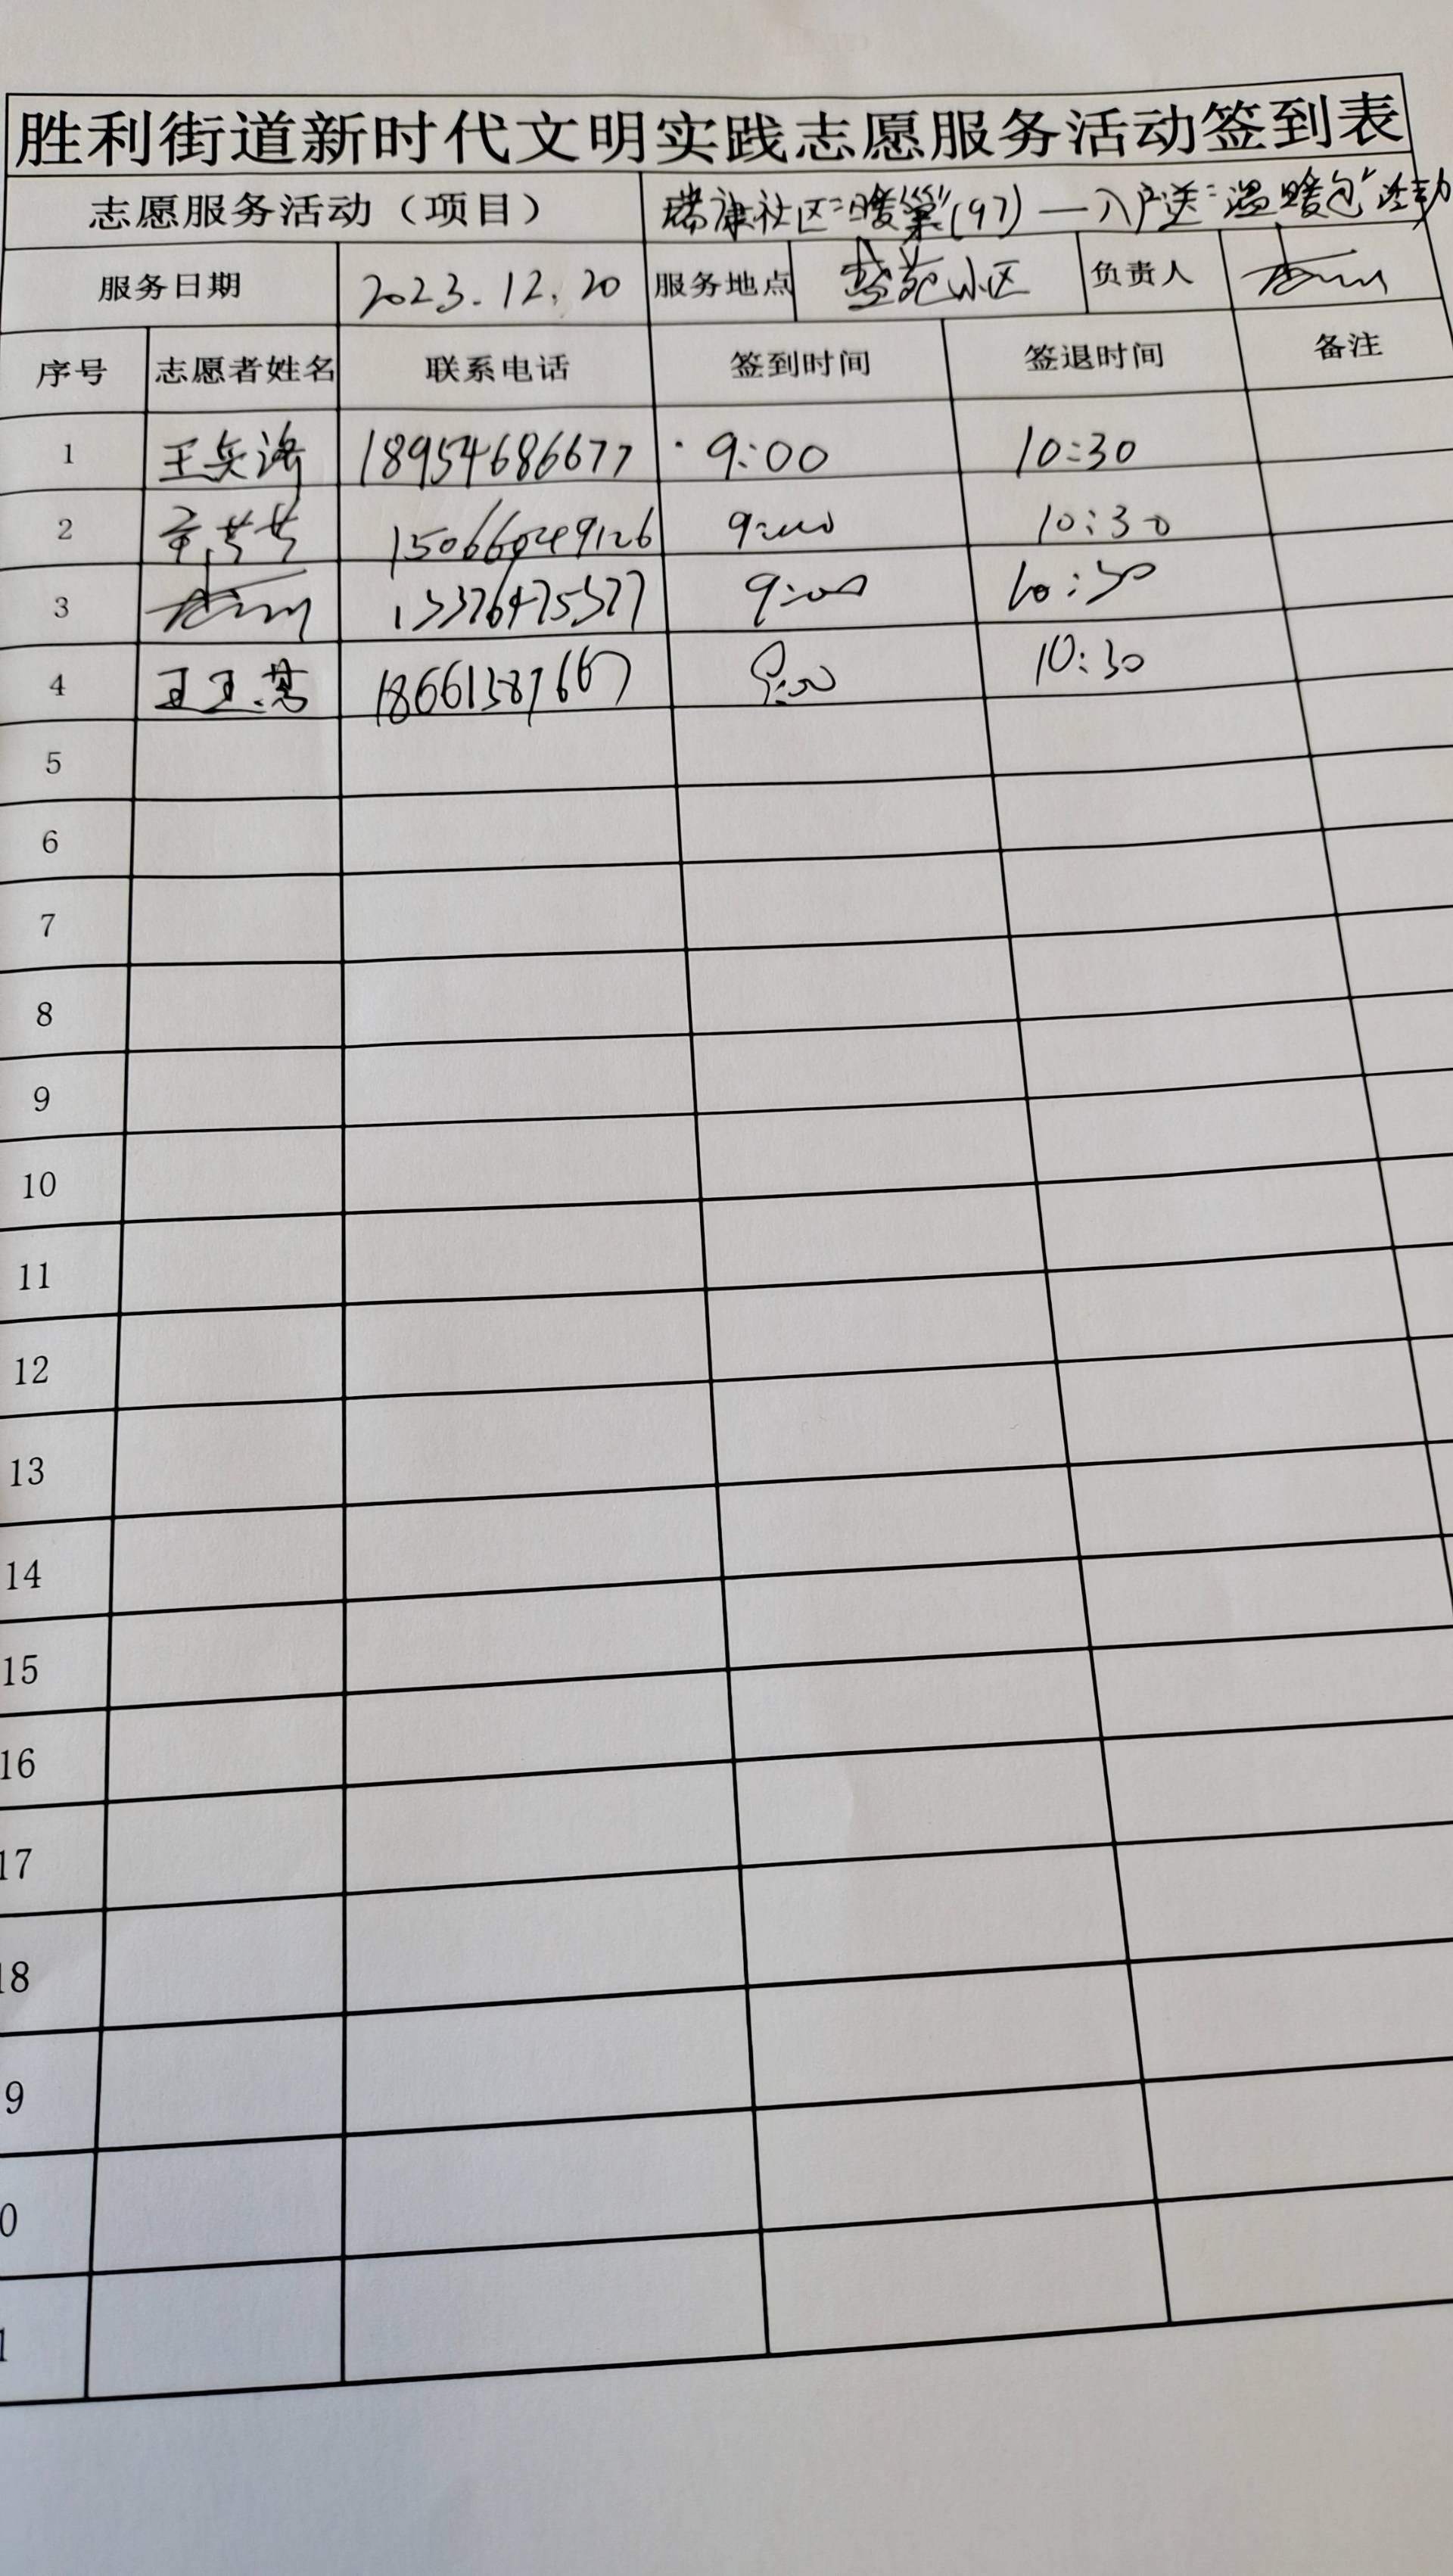 胜利街道新时代文明实践志愿服务活动签到表
志愿服务活动（项目） 社区"暖巢"(97)—入户送"温暖包"活动
服务日期 2023.12.20 服务地点 苑小区 负责人
序号 志愿者姓名 联系电话 签到时间 签退时间 备注
1 王兵 18954686677 9:00 10:30
2 9:00 10:30
3 13376475377 9:00 10:30
4 王玉 18661387667 9:00 10:30
5
6
7
8
9
10
11
12
13
14
15
16
17
18
9
0
1